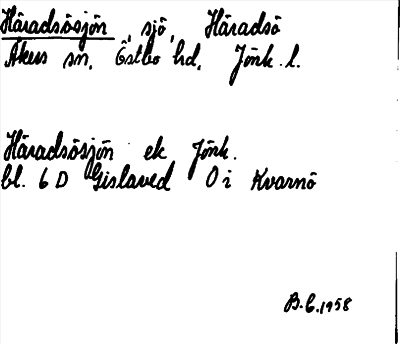 Häradsösjön, sjö, Häradsö
Åkers sn. Östbo hd. Jönk. l.
Häradsösjön ek Jönk.
bl. 6 D Gislaved O i Kvarnö
B.C. 1958